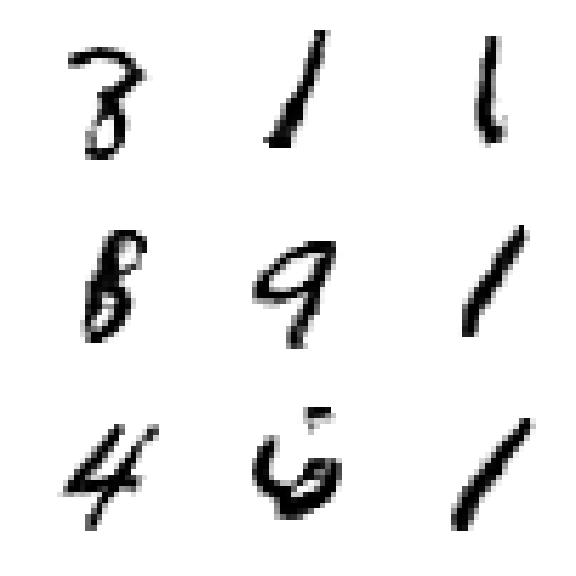 3 1 1
8 9 1
4 6 1